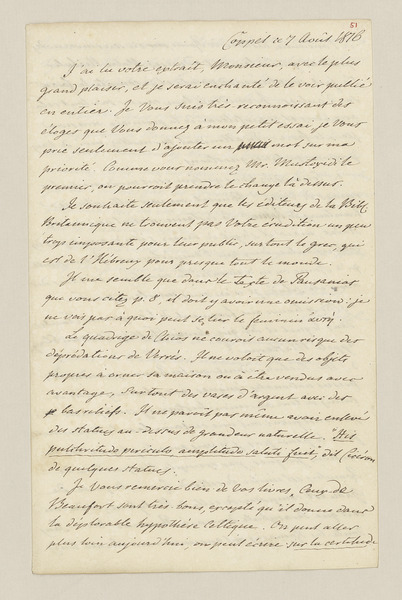 51
Coppet ce 7 Août 1816
J'ai lu votre extrait, Monsieur, avec le plus
grand plaisir, et je serai enchanté de le voir publié
en entier. Je Vous suis très reconnoissant des
éloges que Vous donnez à mon petit essai je Vous
prie seulement d'ajouter un mot sur ma
priorité. Comme vous nommez Mr. Mustoxidi le
premier, on pourroit prendre le change là dessus.
Je souhaite seulement que les éditeurs de la Bibl.
Britannique ne trouvent pas Votre érudition un peu
trop imposante pour leur public, surtout le grec, qui
est de l'Hébreu pour presque tout le monde.
Il me semble que dans le texte de Pausanias
que vous citez p. 8, il doit y avoir une omission: je
ne vois pas à quoi peut se lier le feminin
Le quadrige de Chios ne couroit aucun risque des
déprédations de Verrès. Il ne voloit que des objets
propres à orner sa maison ou à être vendus avec
avantage, surtout des vases d'argent avec des
basreliefs. Il ne paroit pas même avoir enlevé
des statues au-dessus de grandeur naturelle. "His
pulchritudo periculo, amplitudo saluti fuit, dit Cicéron
de quelques statues.
Je Vous remercie bien de Vos livres. Ceux de
Beaufort sont très bons, excepté qu'il donne dans
la déplorable hypothèse Celtique. On peut aller
plus loin aujourd'hui, on peut écrire sur la certitude